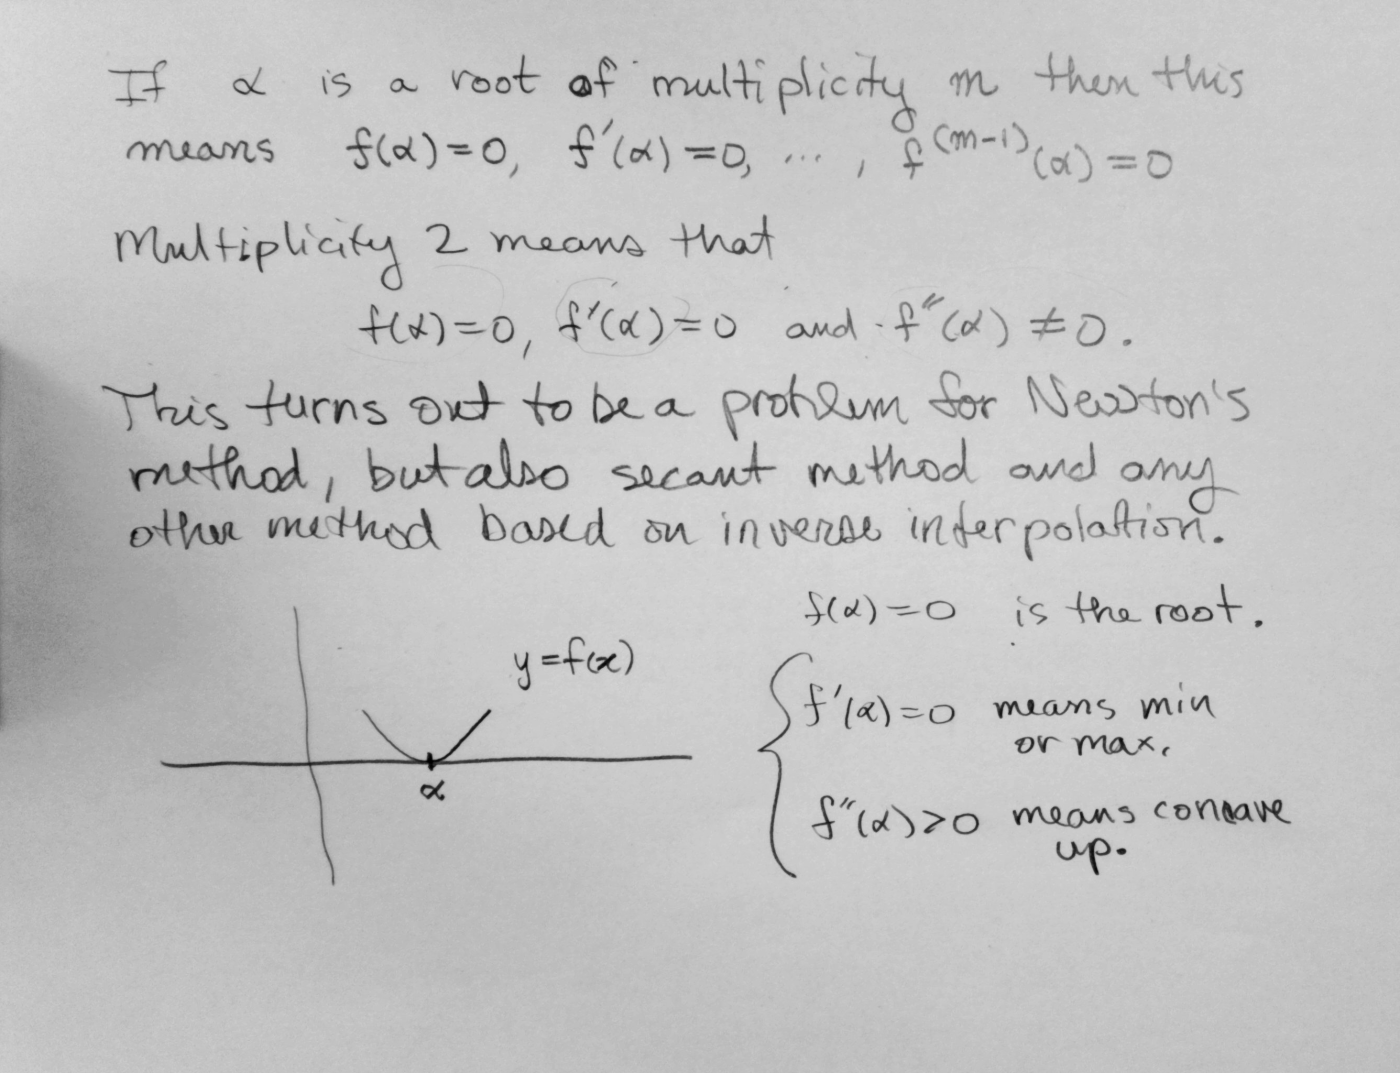 If α is a root of multiplicity m then this
means f(α)=0, f'(α)=0, ..., f^(m-1)(α)=0
Multiplicity 2 means that
f(α)=0, f'(α)=0 and f''(α)≠0.
This turns out to be a problem for Newton's
method, but also secant method and any
other method based on inverse interpolation.
f(α)=0 is the root.
y=f(x)
α
f'(α)=0 means min
or max.
f''(α)>0 means concave
up.